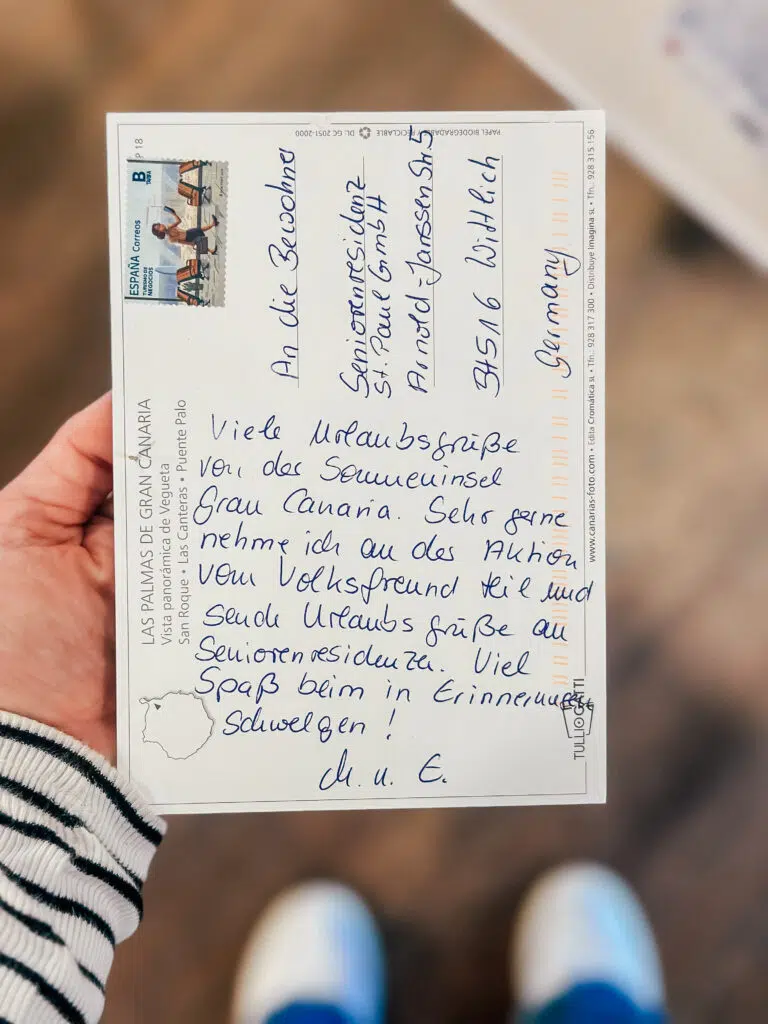 LAS PALMAS DE GRAN CANARIA
Vista panorámica de Vegueta
San Roque • Las Canteras • Puente Palo
ESPAÑA Correos
TURISMO DE
NEGOCIOS
B
TARIFA
Viele Urlaubsgrüße
von der Sonneninsel
Gran Canaria. Sehr gerne
nehme ich an der Aktion
vom Volksfreund teil und
sende Urlaubsgrüße an
Seniorenresidenzen. Viel
Spaß beim in Erinnerungen
Schwelgen!
M. u. E.
An die Bewohner
Seniorenresidenz
St. Paul GmbH
Arnold-Janssen Str. 5
54516 Wittlich
Germany
PAPEL BIODEGRADABLE Y RECICLABLE
DL. GC 2051-2000
TULLIO GATTI
www.canarias-foto.com • Edita Cromática SL • Tfn.: 928 317 300 • Distribuye Imagina SL • Tfn.: 928 315 156